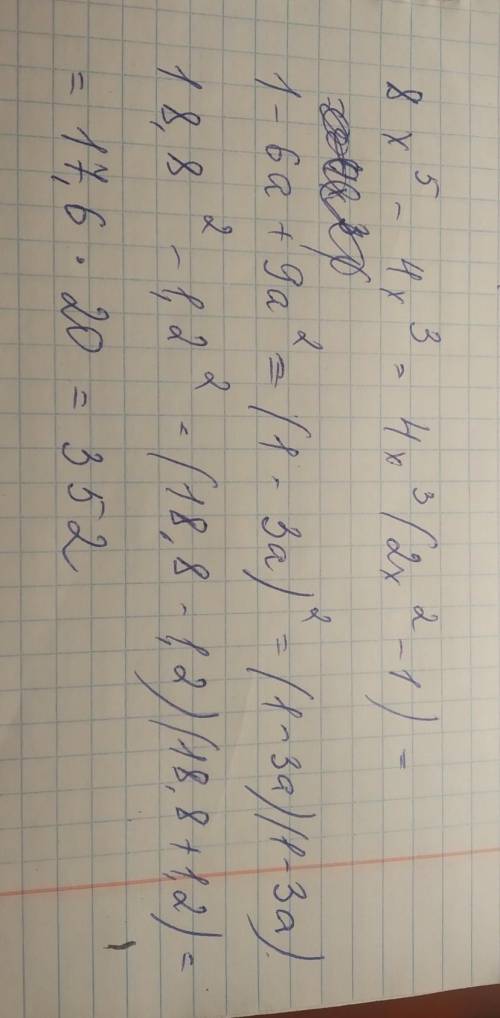 8x⁵ - 4x³ = 4x³(2x² - 1) =
1 - 6a + 9a² = (1 - 3a)² = (1 - 3a)(1 - 3a).
18,8² - 1,2² = (18,8 - 1,2)(18,8 + 1,2) =
= 17,6 · 20 = 352